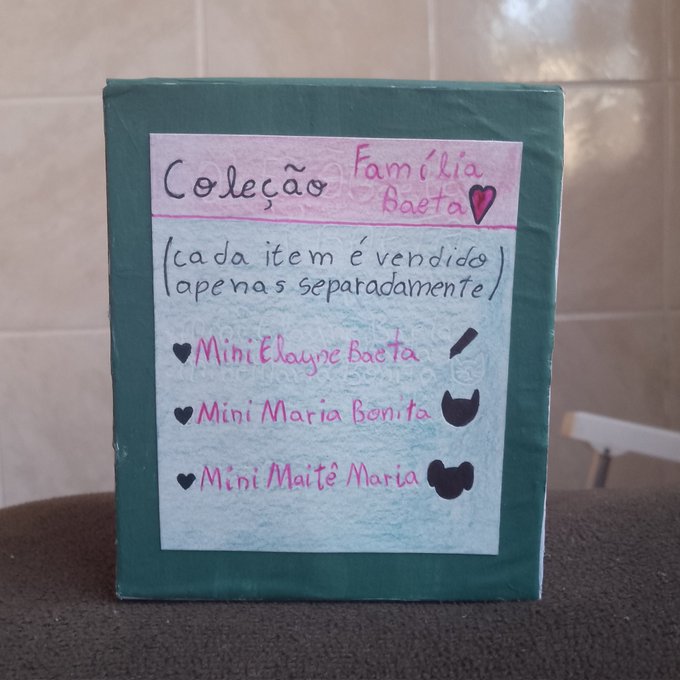 Coleção Família
Baeta
(cada item é vendido
apenas separadamente)
Mini Elayne Baeta
Mini Maria Bonita
Mini Maitê Maria